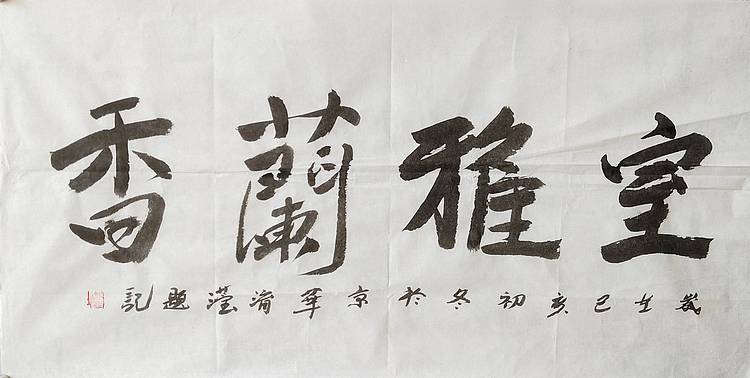 室雅蘭香
歲在己亥初冬於京華滄瀅題記